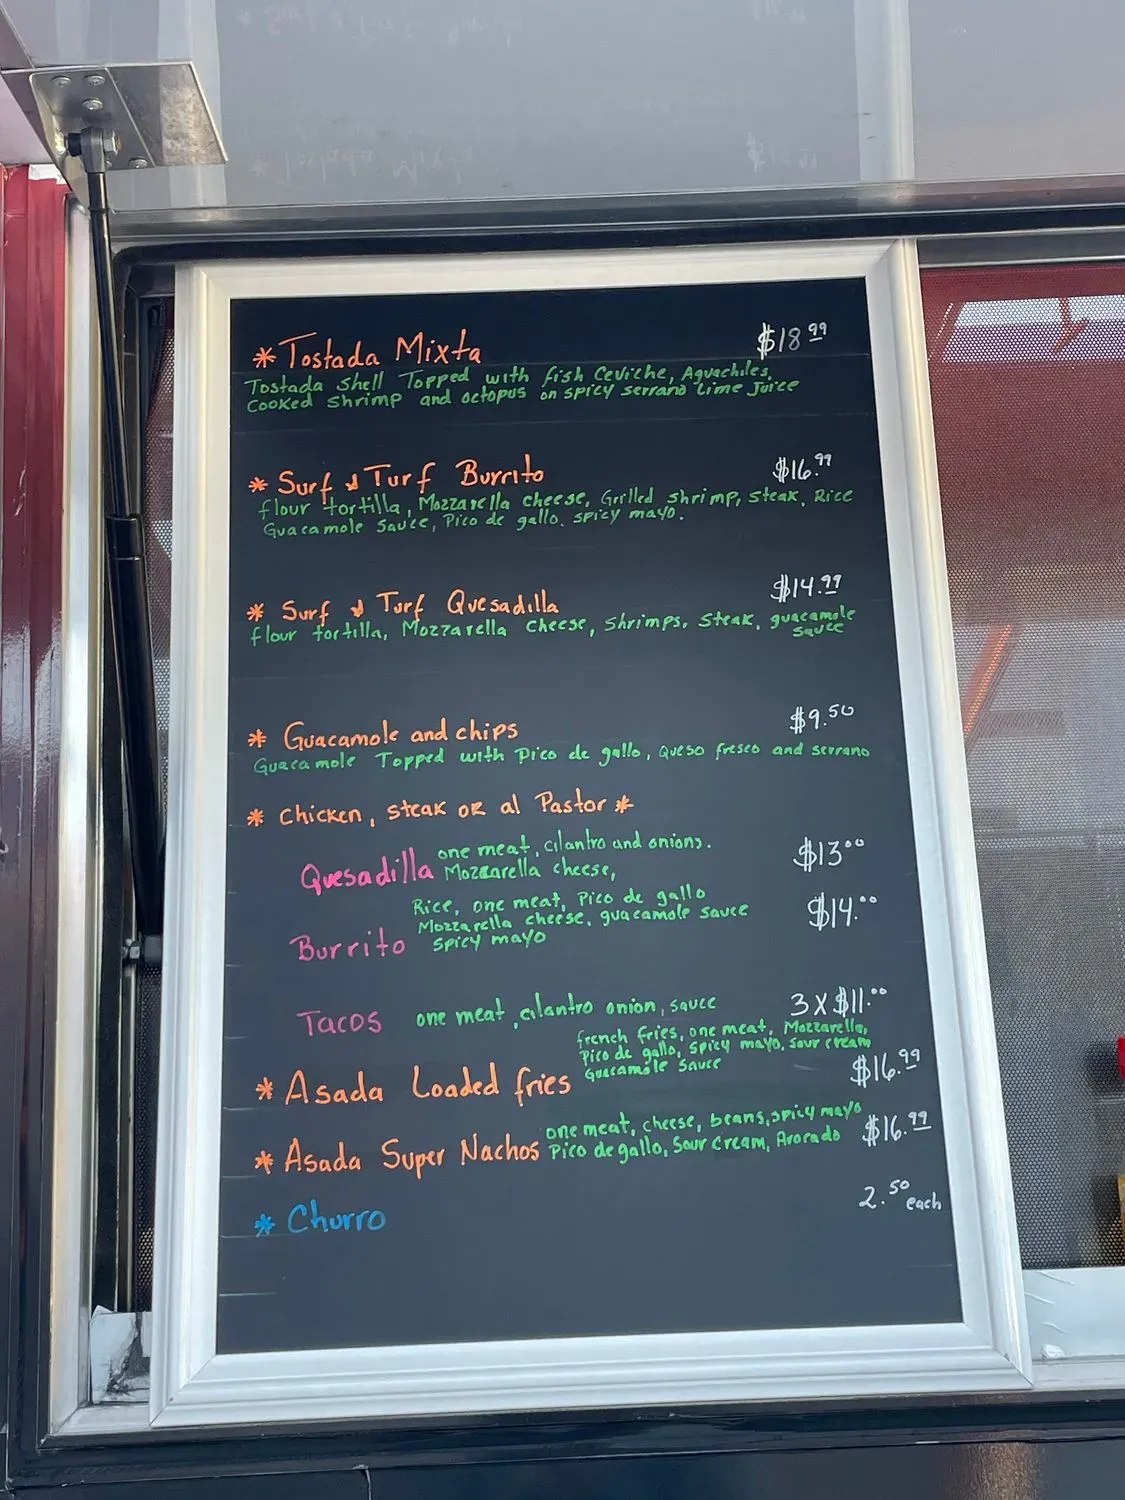 * Tostada Mixta $18.99
Tostada Shell Topped with fish Ceviche, Aguachiles,
Cooked Shrimp and octopus on spicy serrano Lime Juice
* Surf & Turf Burrito $16.99
flour tortilla, Mozzarella cheese, Grilled shrimp, steak, Rice
Guacamole Sauce, Pico de gallo, spicy mayo.
* Surf & Turf Quesadilla $14.99
flour tortilla, Mozzarella Cheese, Shrimps, Steak, guacamole
sauce
* Guacamole and chips $9.50
Guacamole Topped with Pico de gallo, Queso fresco and serrano
* Chicken, steak or al Pastor *
Quesadilla one meat, cilantro and onions. $13.00
Mozzarella cheese,
Rice, one meat, Pico de gallo
Mozzarella cheese, guacamole sauce $14.00
Burrito spicy mayo
Tacos one meat, cilantro onion, sauce 3 X $11.00
french fries, one meat, Mozzarella,
Pico de gallo, spicy mayo, sour cream
Guacamole Sauce
* Asada Loaded fries $16.99
one meat, cheese, beans, spicy mayo
* Asada Super Nachos Pico de gallo, Sour Cream, Avocado $16.99
* Churro 2.50 each